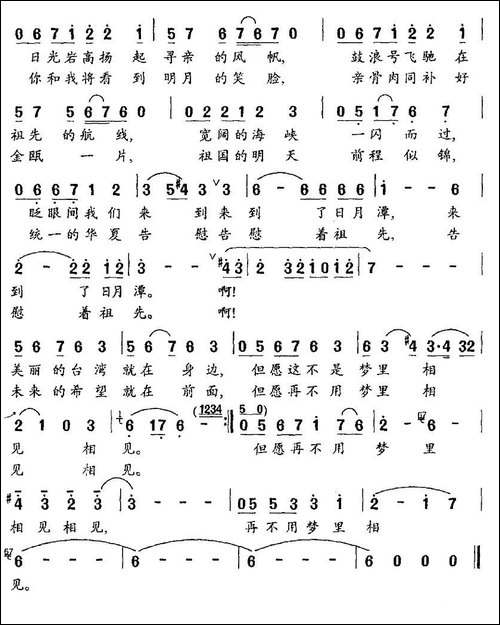 0 6 7 1 2 2 1 | 5 7 6 7 6 7 0 | 0 6 7 1 2 2 1 |
日光岩高扬 起寻亲的风帆, 鼓浪号飞驰在
你和我将看 到明月的笑脸, 亲骨肉同补好
5 7 5 6 7 6 0 | 0 2 2 1 2 3 | 0 5 1 7 6 7 |
祖先的航线, 宽阔的海峡 一闪而过,
金瓯一片, 祖国的明天 前程似锦,
0 6 6 7 1 2 | 3 5 #4 3 3 | 6 - 6 6 6 6 | 1 - - 6 |
眨眼间我们来到来到了日月潭, 来
统一的华夏告慰告慰着祖先, 告
2 - 2 2 1 2 | 3 - - #4 3 | 2 3 2 1 0 1 2 | 7 - - - |
到了日月潭。 啊!
慰着祖先。 啊!
5 6 7 6 3 | 5 6 7 6 3 | 0 5 5 6 7 6 3 | 6 3 #4 3·4 3 2 |
美丽的台湾就在身边, 但愿这不是梦里相
未来的希望就在前面, 但愿再不用梦里相
2 1 0 3 | 6 1 7 6 - (1 2 3 4 :| 5 0) 0 5 6 7 1 1 7 6 | 2 - - 6 |
见 相见。 但愿再不用梦里
见 相见。
#4 3 2 3 3 | 3 - - - | 0 5 5 3 3 1 | 2 - 1 7 |
相见相见, 再不用梦里相
6 - - - | 6 - - - | 6 - - - | 6 0 0 0 ‖
见。